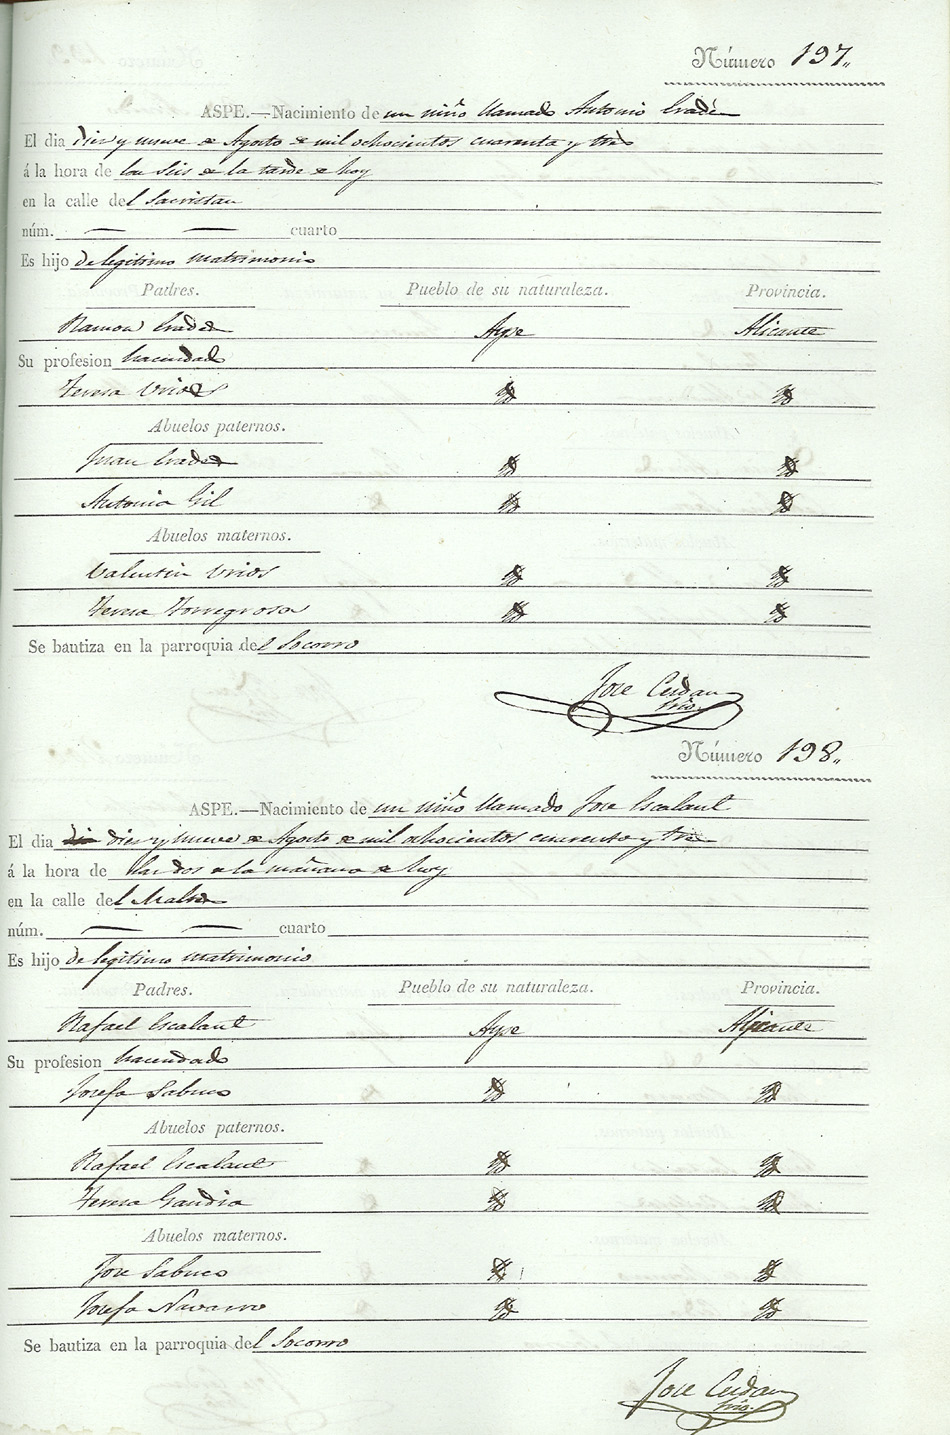 Número 197.
ASPE.—Nacimiento de un niño llamado Antonio
El dia diez y nueve de Agosto de mil ochocientos cuarenta y tres
á la hora de las seis de la tarde de hoy
en la calle del Sacristan
núm. — — cuarto
Es hijo de legitimo matrimonio
Padres. Pueblo de su naturaleza. Provincia.
Ramon Aspe Alicante
Su profesion hacendado
Teresa Urios
Abuelos paternos.
Juan
Antonia Gil
Abuelos maternos.
Valentin Urios
Teresa Torregrosa
Se bautiza en la parroquia del Socorro
Jose Cerdan
Número 198.
ASPE.—Nacimiento de un niño llamado Jose Escalant
El dia diez y nueve de Agosto de mil ochocientos cuarenta y tres
á la hora de las dos de la mañana de hoy
en la calle del
núm. — — cuarto
Es hijo de legitimo matrimonio
Padres. Pueblo de su naturaleza. Provincia.
Rafael Escalant Aspe Alicante
Su profesion hacendado
Josefa Sabuco
Abuelos paternos.
Rafael Escalant
Teresa Gandia
Abuelos maternos.
Jose Sabuco
Josefa Navarro
Se bautiza en la parroquia del Socorro
Jose Cerdan